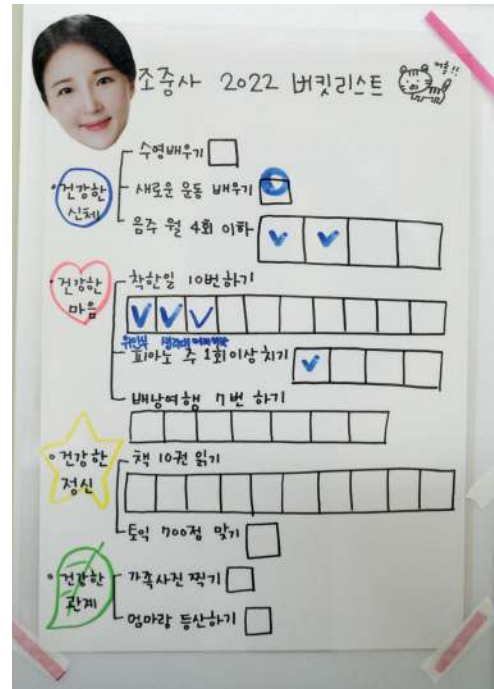 조중사 2022 버킷리스트
어흥!!
수영배우기
• 건강한 신체
새로운 운동 배우기
음주 월 4회 이하
• 건강한 마음
착한일 10번하기
피아노 주 1회이상 치기
배낭여행 7번 하기
• 건강한 정신
책 10권 읽기
토익 700점 맞기
• 건강한 관계
가족사진 찍기
엄마랑 등산하기